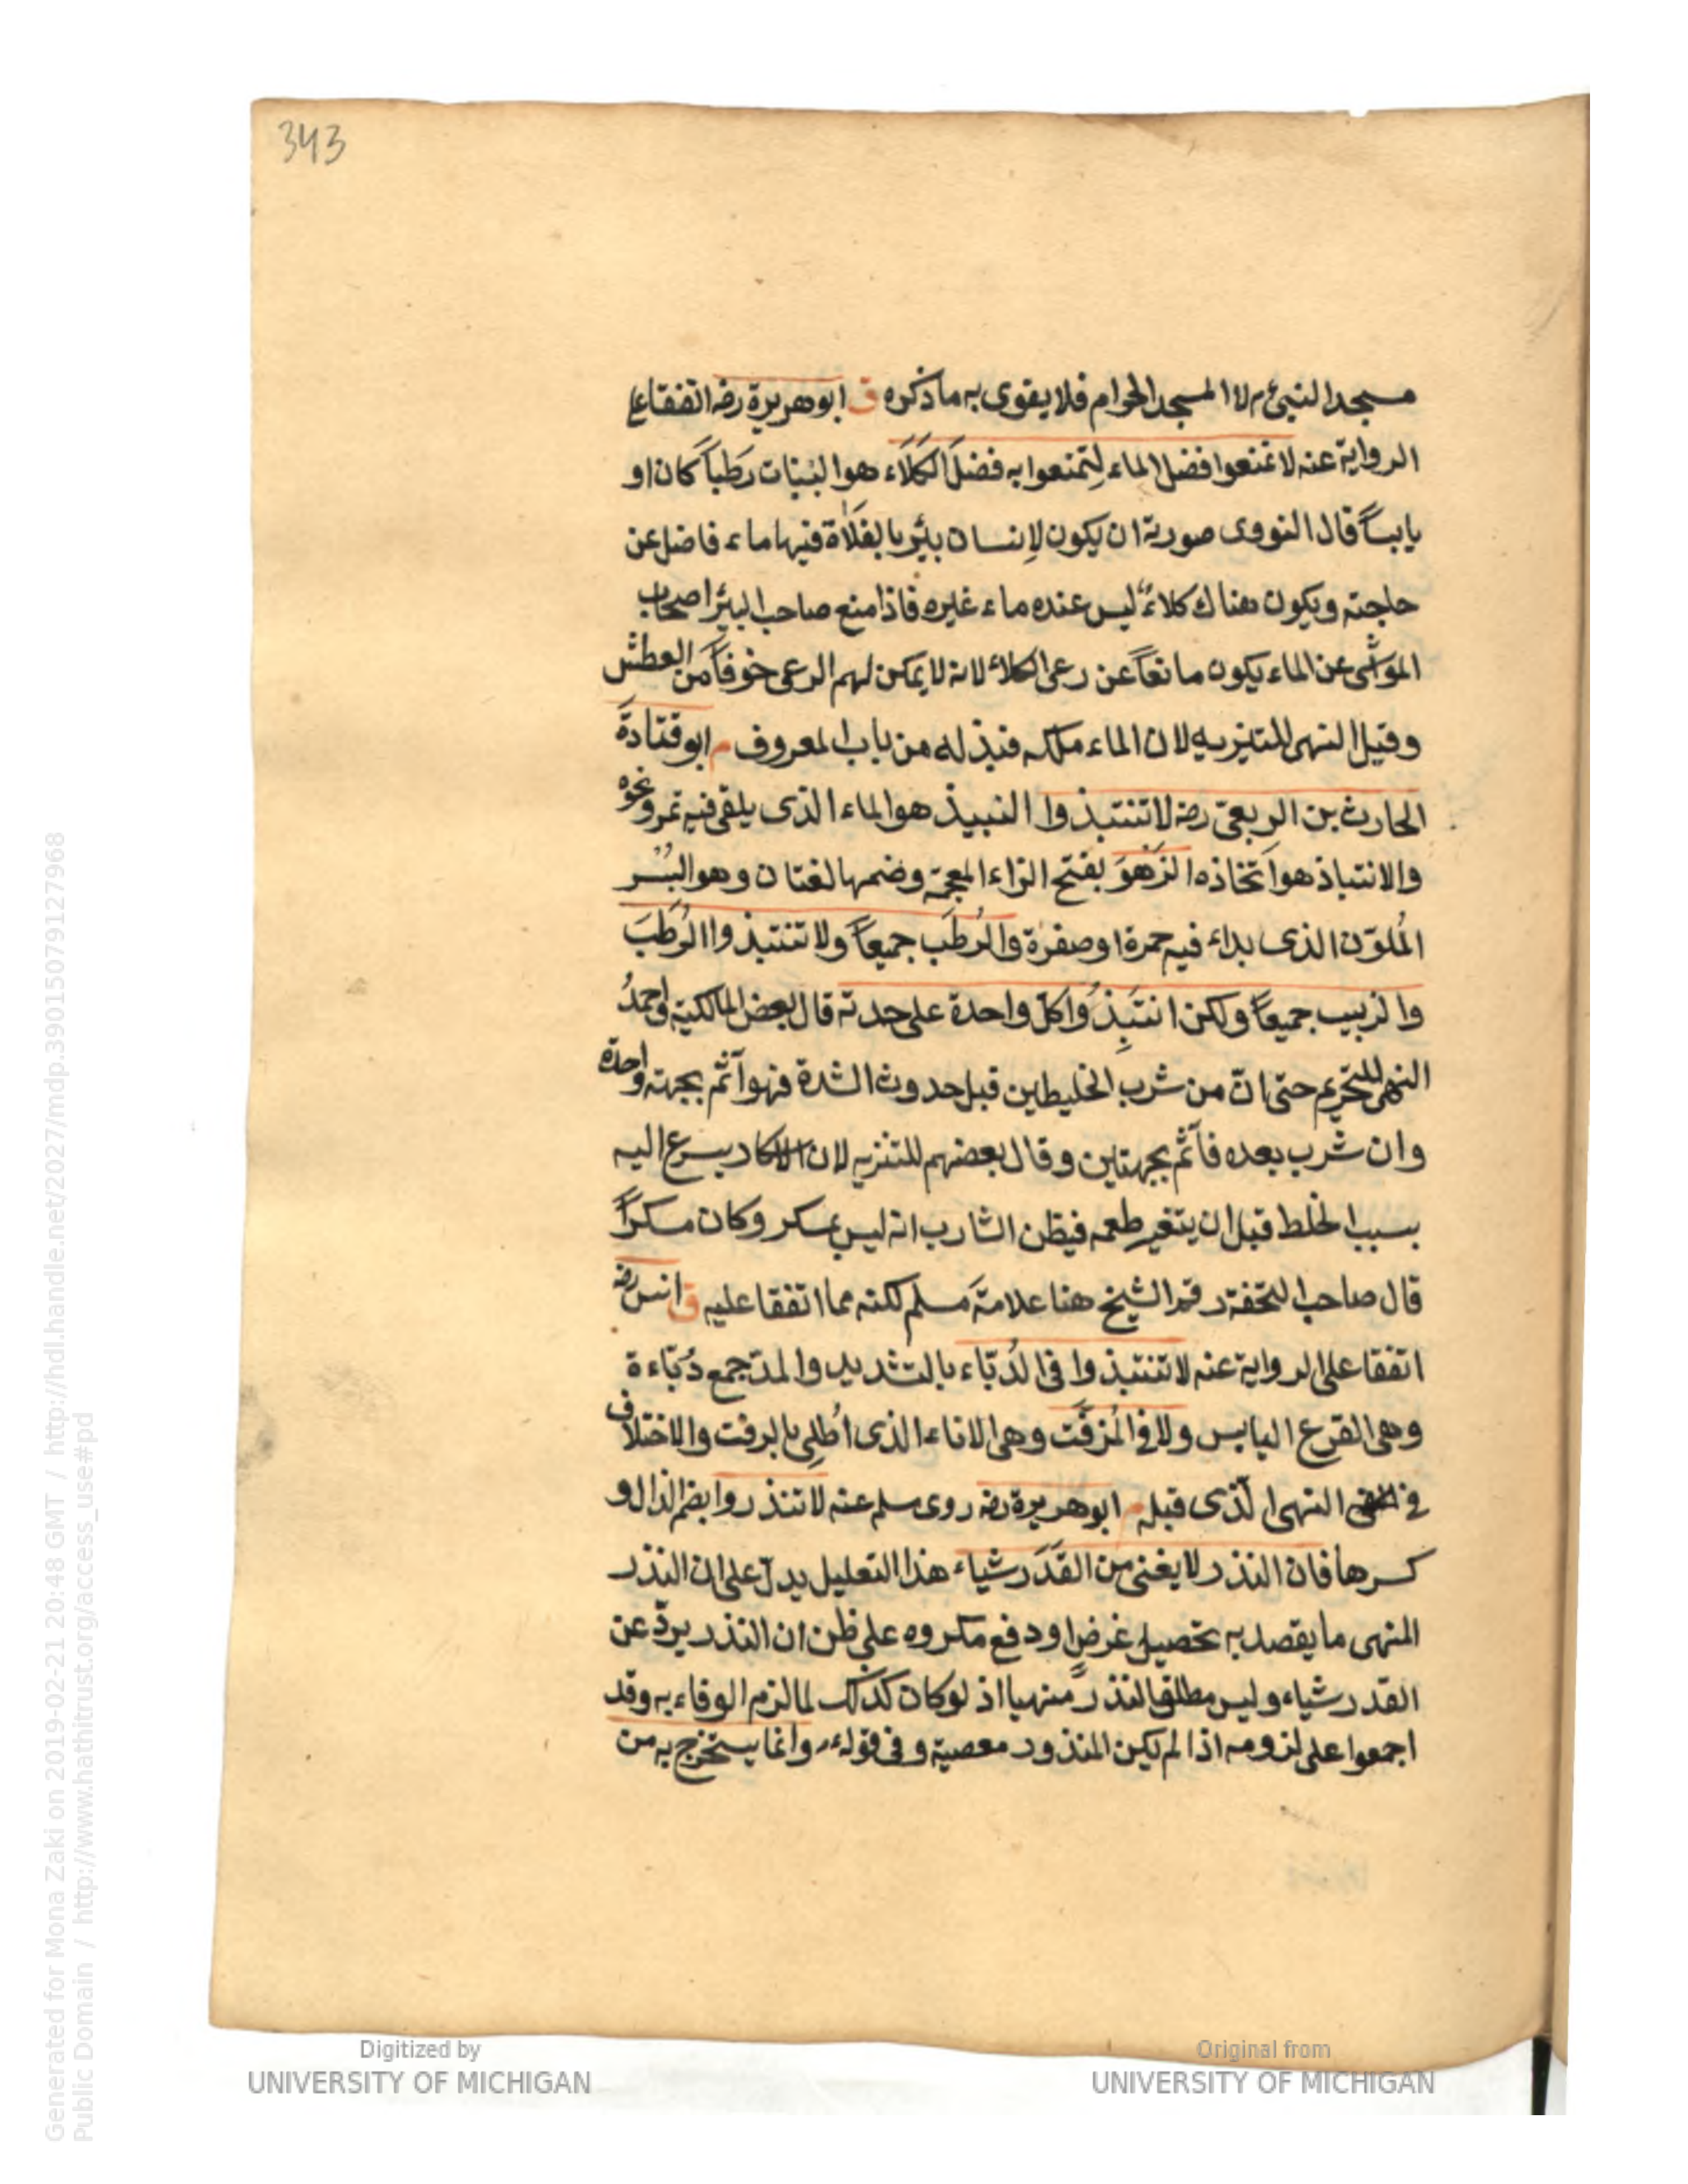 343
مسجد النبي م لا المسجد الحرام فلا يقوى به ما ذكره ق ابو هريرة رضه اتفقا على
الرواية عنه لا تمنعوا فضل الماء لِتمنعوا به فضلَ الكَلَاء هو النبات رَطباً كان او
يابساً قال النووى صورته ان يكون لِانسان بئر بالفَلَاة فيها ماء فاضل عن
حاجته ويكون هناك كلاءٌ ليس عنده ماء غيره فاذا منع صاحب البئر اصحاب
المواشى عن الماء يكون مانعاً عن رعى الكلاء لانه لا يمكن لهم الرعى خوفاً من العطش
وقيل النهى للتنزيه لان الماء ملكه فبذله من باب المعروف م ابو قتادة
الحارث بن الربعىّ رضه لا تنتبذوا النبيذ هو الماء الذى يلقى فيه تمر ونحوه
والانتباذ هو اتخاذه الزَهْوَ بفتح الزاء المعجمة وضمها لغتان وهو البُسْر
المُلوّن الذى بداء فيه حمرة او صفرة والرُطَب جميعاً ولا تنتبذوا الرُطَبَ
والزبيب جميعاً ولكن انتَبِذُوا كلّ واحدة على حدته قال بعض المالكية واحمدُ
النهى للتحريم حتى انّ من شرب الخليطين قبل حدوث الشدة فهو آثم بجهته واحدة
وان شرب بعده فآثم بجهتين وقال بعضهم للتنزيه لان الاسكار يسرع اليه
بسبب الخلط قبل ان يتغير طعمه فيظن الشارب انه ليس بمسكر وكان مسكراً
قال صاحب التحفة رقم الشيخ هنا علامةَ مسلم لكنه مما اتفقا عليه ق انس رضه
اتفقا على الرواية عنه لا تنتبذوا فى الدُبّاء بالتشديد والمد جمع دُبّاءة
وهى القرع اليابس ولا فى المُزفّت وهى الاناء الذى اُطلِى بالزفت والاختلاف
فى النهى الّذى قبله م ابو هريرة رضه روى مسلم عنه لا تنذروا بضم الذال و
كسرها فان النذر لا يغنى من القَدَر شياء هذا التعليل يدلّ على ان النذر
المنهى ما يقصد به تحصيل غرضٍ او دفع مكروه على ظن ان النذر يردّ عن
القدر شياء وليس مطلق النذر منهيا اذ لو كان كذلك لما لزم الوفاء به وقد
اجمعوا على لزومه اذا لم يكن المنذور معصية وفى قوله م وانما يستخرج به من
Digitized by
UNIVERSITY OF MICHIGAN
Original from
UNIVERSITY OF MICHIGAN
Generated for Mona Zaki on 2019-02-21 20:48 GMT / http://hdl.handle.net/2027/mdp.39015079127968
Public Domain / http://www.hathitrust.org/access_use#pd